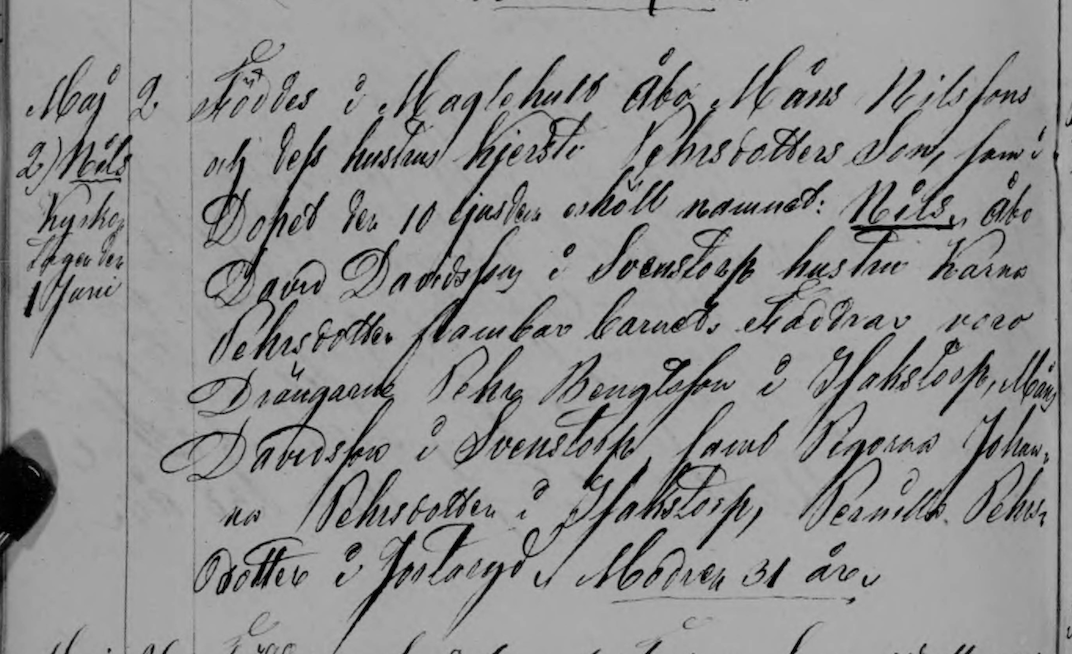 Maj 2
2) Nils
Kyrko
tagen den
1 Juni
Föddes i Maglehult Åbo Måns Nilssons
och dess hustrus Kjersti Pehrsdotters Son, som i
Dopet den 10 ejusdem erhöll namnet: Nils. Åbo
David Davidssons i Svenstorp hustru Karna
Pehrsdotter frambar barnet. Faddrar voro
Drängarne Pehr Bengtsson i Isakstorp, Måns
Davidsson i Svenstorp, samt Pigorna Johan-
na Pehrsdotter i Isakstorp, Pernilla Pehrs-
dotter i . Modren 31 år.